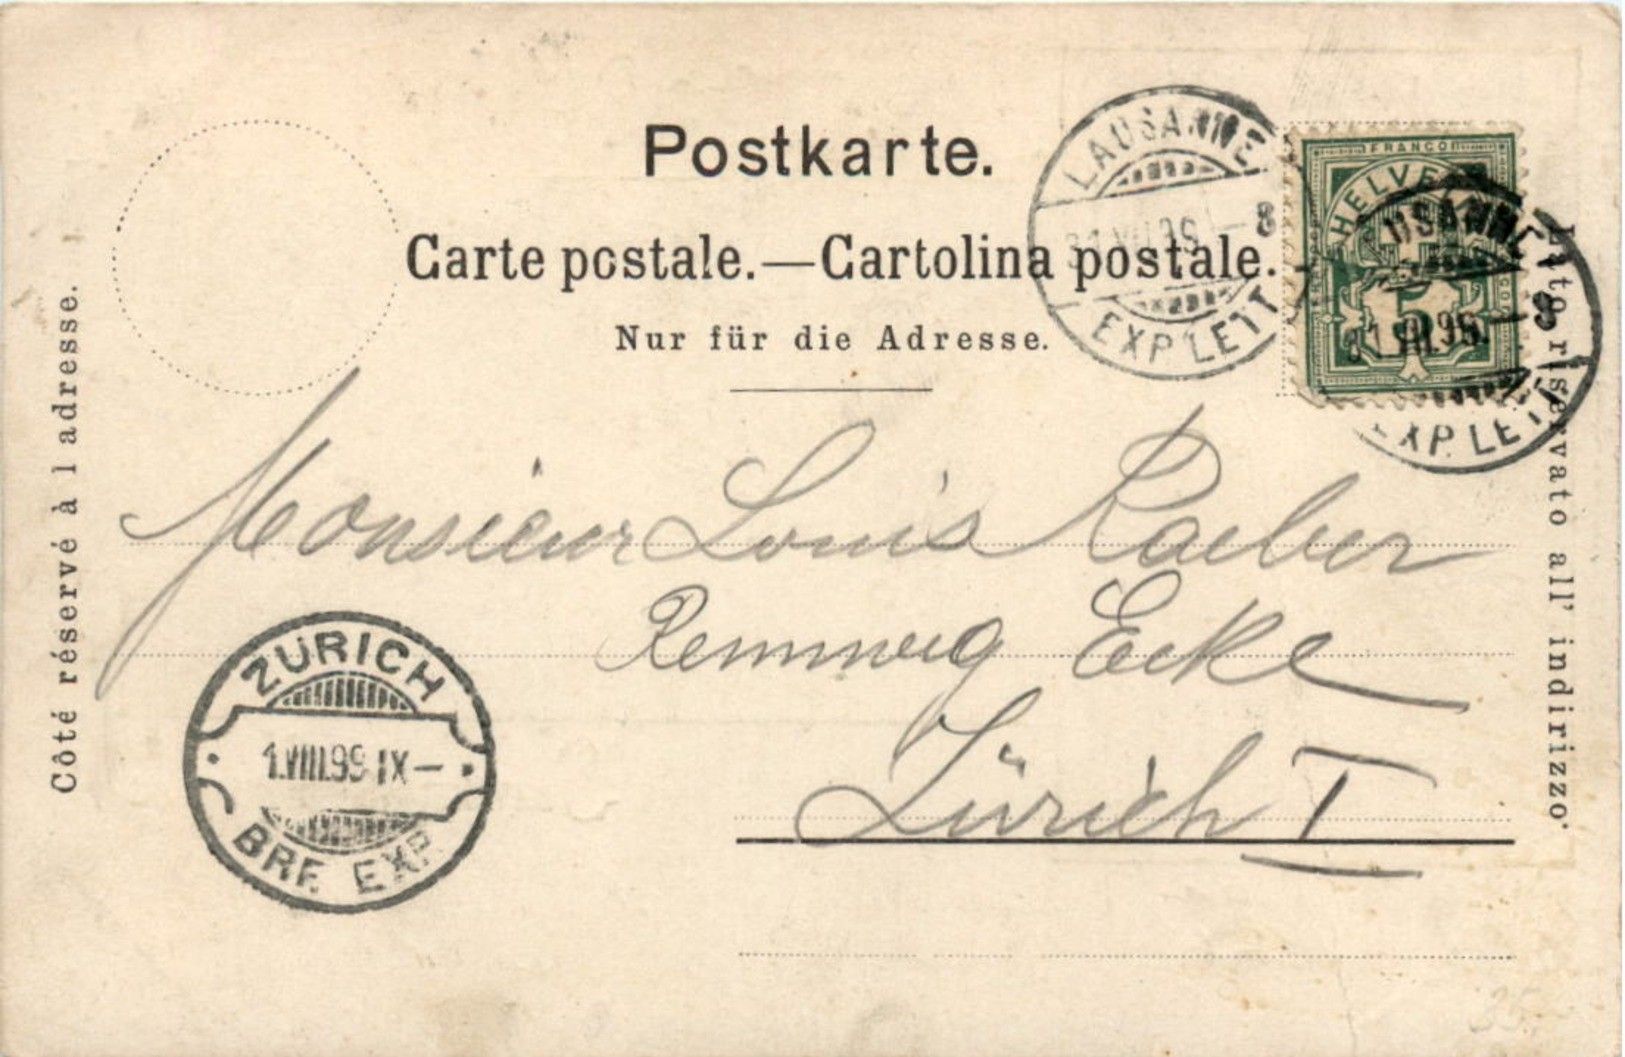 Postkarte.
Carte postale.—Cartolina postale.
Nur für die Adresse.
Côté réservé à l adresse.
Lato riservato all' indirizzo.
LAUSANNE
31.VII.99.—8
EXP. LETT.
FRANCO
HELVETIA
5
LAUSANNE
31.VII.99.—8
EXP. LETT.
Monsieur Louis Raeber
Rennweg Ecke
Zürich I
ZÜRICH
1.VIII.99.IX—
BRF. EXP.
35.